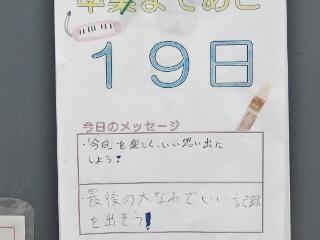 卒業まであと
19日
今日のメッセージ
・今日を楽しく、いい思い出に
しよう!
最後の大なわでいい記録
を出そう!